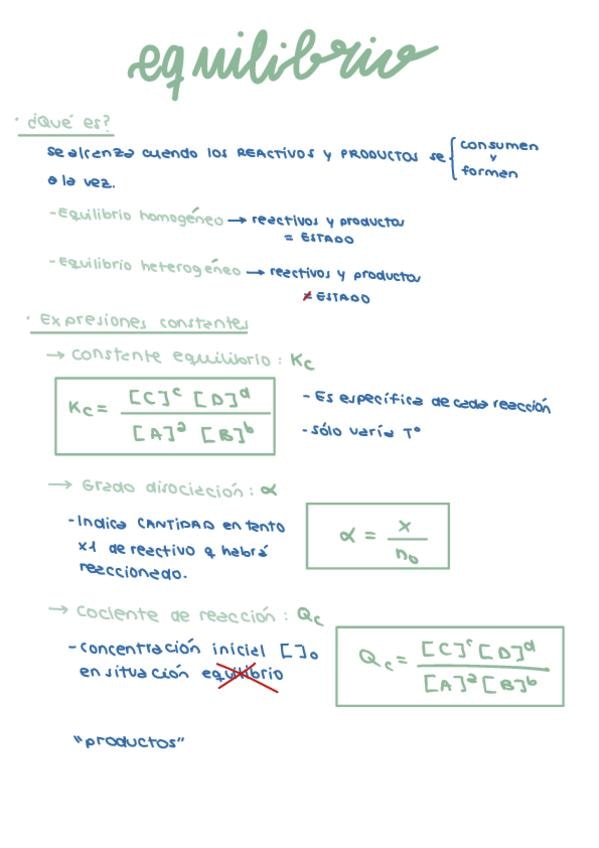 equilibrio
· ¿Qué es?
Se alcanza cuando los REACTIVOS y PRODUCTOS se { consumen y formen
a la vez.
- Equilibrio homogéneo → reactivos y productos
= ESTADO
- Equilibrio heterogéneo → reactivos y productos
≠ ESTADO
· Expresiones constantes
→ constante equilibrio : Kc
Kc = [C]^c [D]^d / [A]^a [B]^b
- Es específica de cada reacción
- sólo varía Tº
→ Grado disociación : α
- Indica CANTIDAD en tanto
x1 de reactivo q habrá
reaccionado.
α = x / n₀
→ Cociente de reacción : Qc
- concentración inicial [ ]₀
en situación equilibrio
Qc = [C]^c [D]^d / [A]^a [B]^b
"productos"